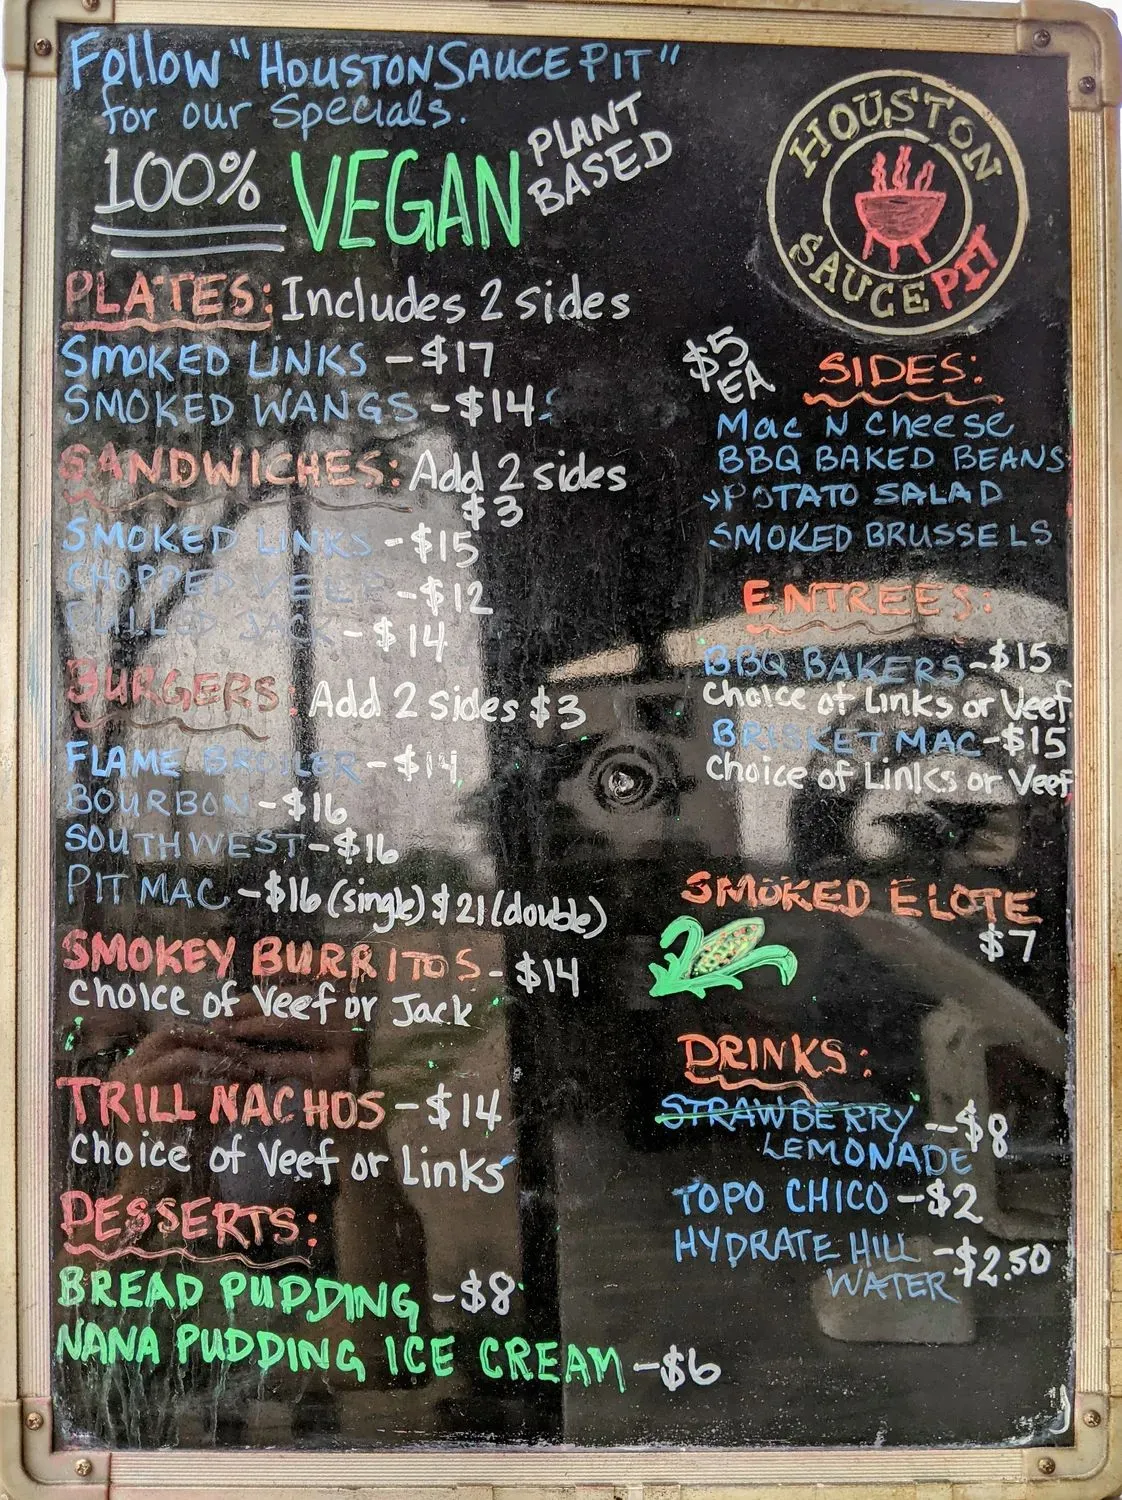 Follow "HOUSTON SAUCE PIT"
for our Specials.
100% VEGAN PLANT BASED
HOUSTON SAUCE PIT
PLATES: Includes 2 sides
SMOKED LINKS - $17
SMOKED WANGS - $14
SANDWICHES: Add 2 sides
$3
SMOKED LINKS - $15
CHOPPED VEEF - $12
PULLED JACK - $14
BURGERS: Add 2 sides $3
FLAME BROILER - $14
BOURBON - $16
SOUTHWEST - $16
PIT MAC - $16 (single) $21 (double)
SMOKEY BURRITOS - $14
choice of Veef or Jack
TRILL NACHOS - $14
choice of Veef or Links
DESSERTS:
BREAD PUDDING - $8
NANA PUDDING ICE CREAM - $6
$5 EA SIDES:
Mac N Cheese
BBQ BAKED BEANS
POTATO SALAD
SMOKED BRUSSELS
ENTREES:
BBQ BAKERS - $15
choice of Links or Veef
BRISKET MAC - $15
choice of Links or Veef
SMOKED ELOTE
$7
DRINKS:
STRAWBERRY - $8
LEMONADE
TOPO CHICO - $2
HYDRATE HILL - $2.50
WATER